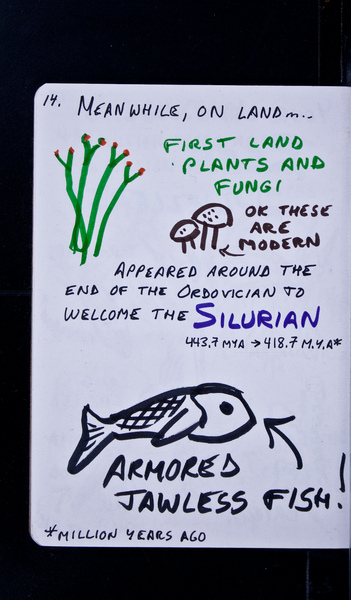 14. MEANWHILE, ON LAND...
FIRST LAND
PLANTS AND
FUNGI
OK THESE
ARE
MODERN
APPEARED AROUND THE
END OF THE ORDOVICIAN TO
WELCOME THE SILURIAN
443.7 MYA → 418.7 M.Y.A*
ARMORED
JAWLESS FISH!
*MILLION YEARS AGO